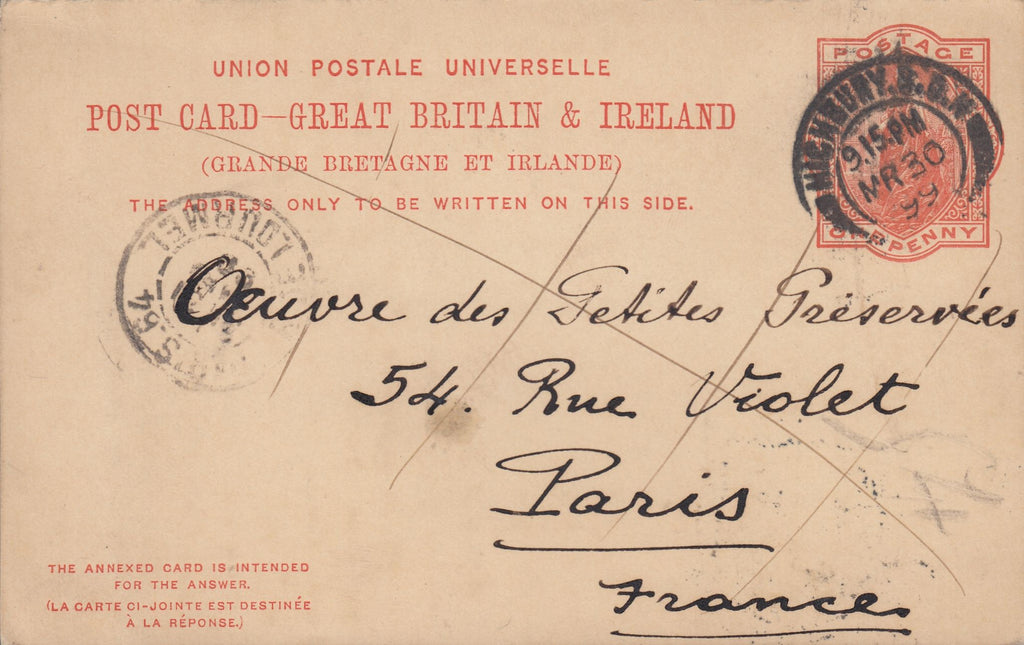 UNION POSTALE UNIVERSELLE
POST CARD—GREAT BRITAIN & IRELAND
(GRANDE BRETAGNE ET IRLANDE)
THE ADDRESS ONLY TO BE WRITTEN ON THIS SIDE.
POSTAGE
ONE PENNY
HIGHBURY. S.O.N
9.15.PM
MR 30
99
Oeuvre des Petites Préservées
54. Rue Violet
Paris
France.
THE ANNEXED CARD IS INTENDED
FOR THE ANSWER.
(LA CARTE CI-JOINTE EST DESTINÉE
À LA RÉPONSE.)